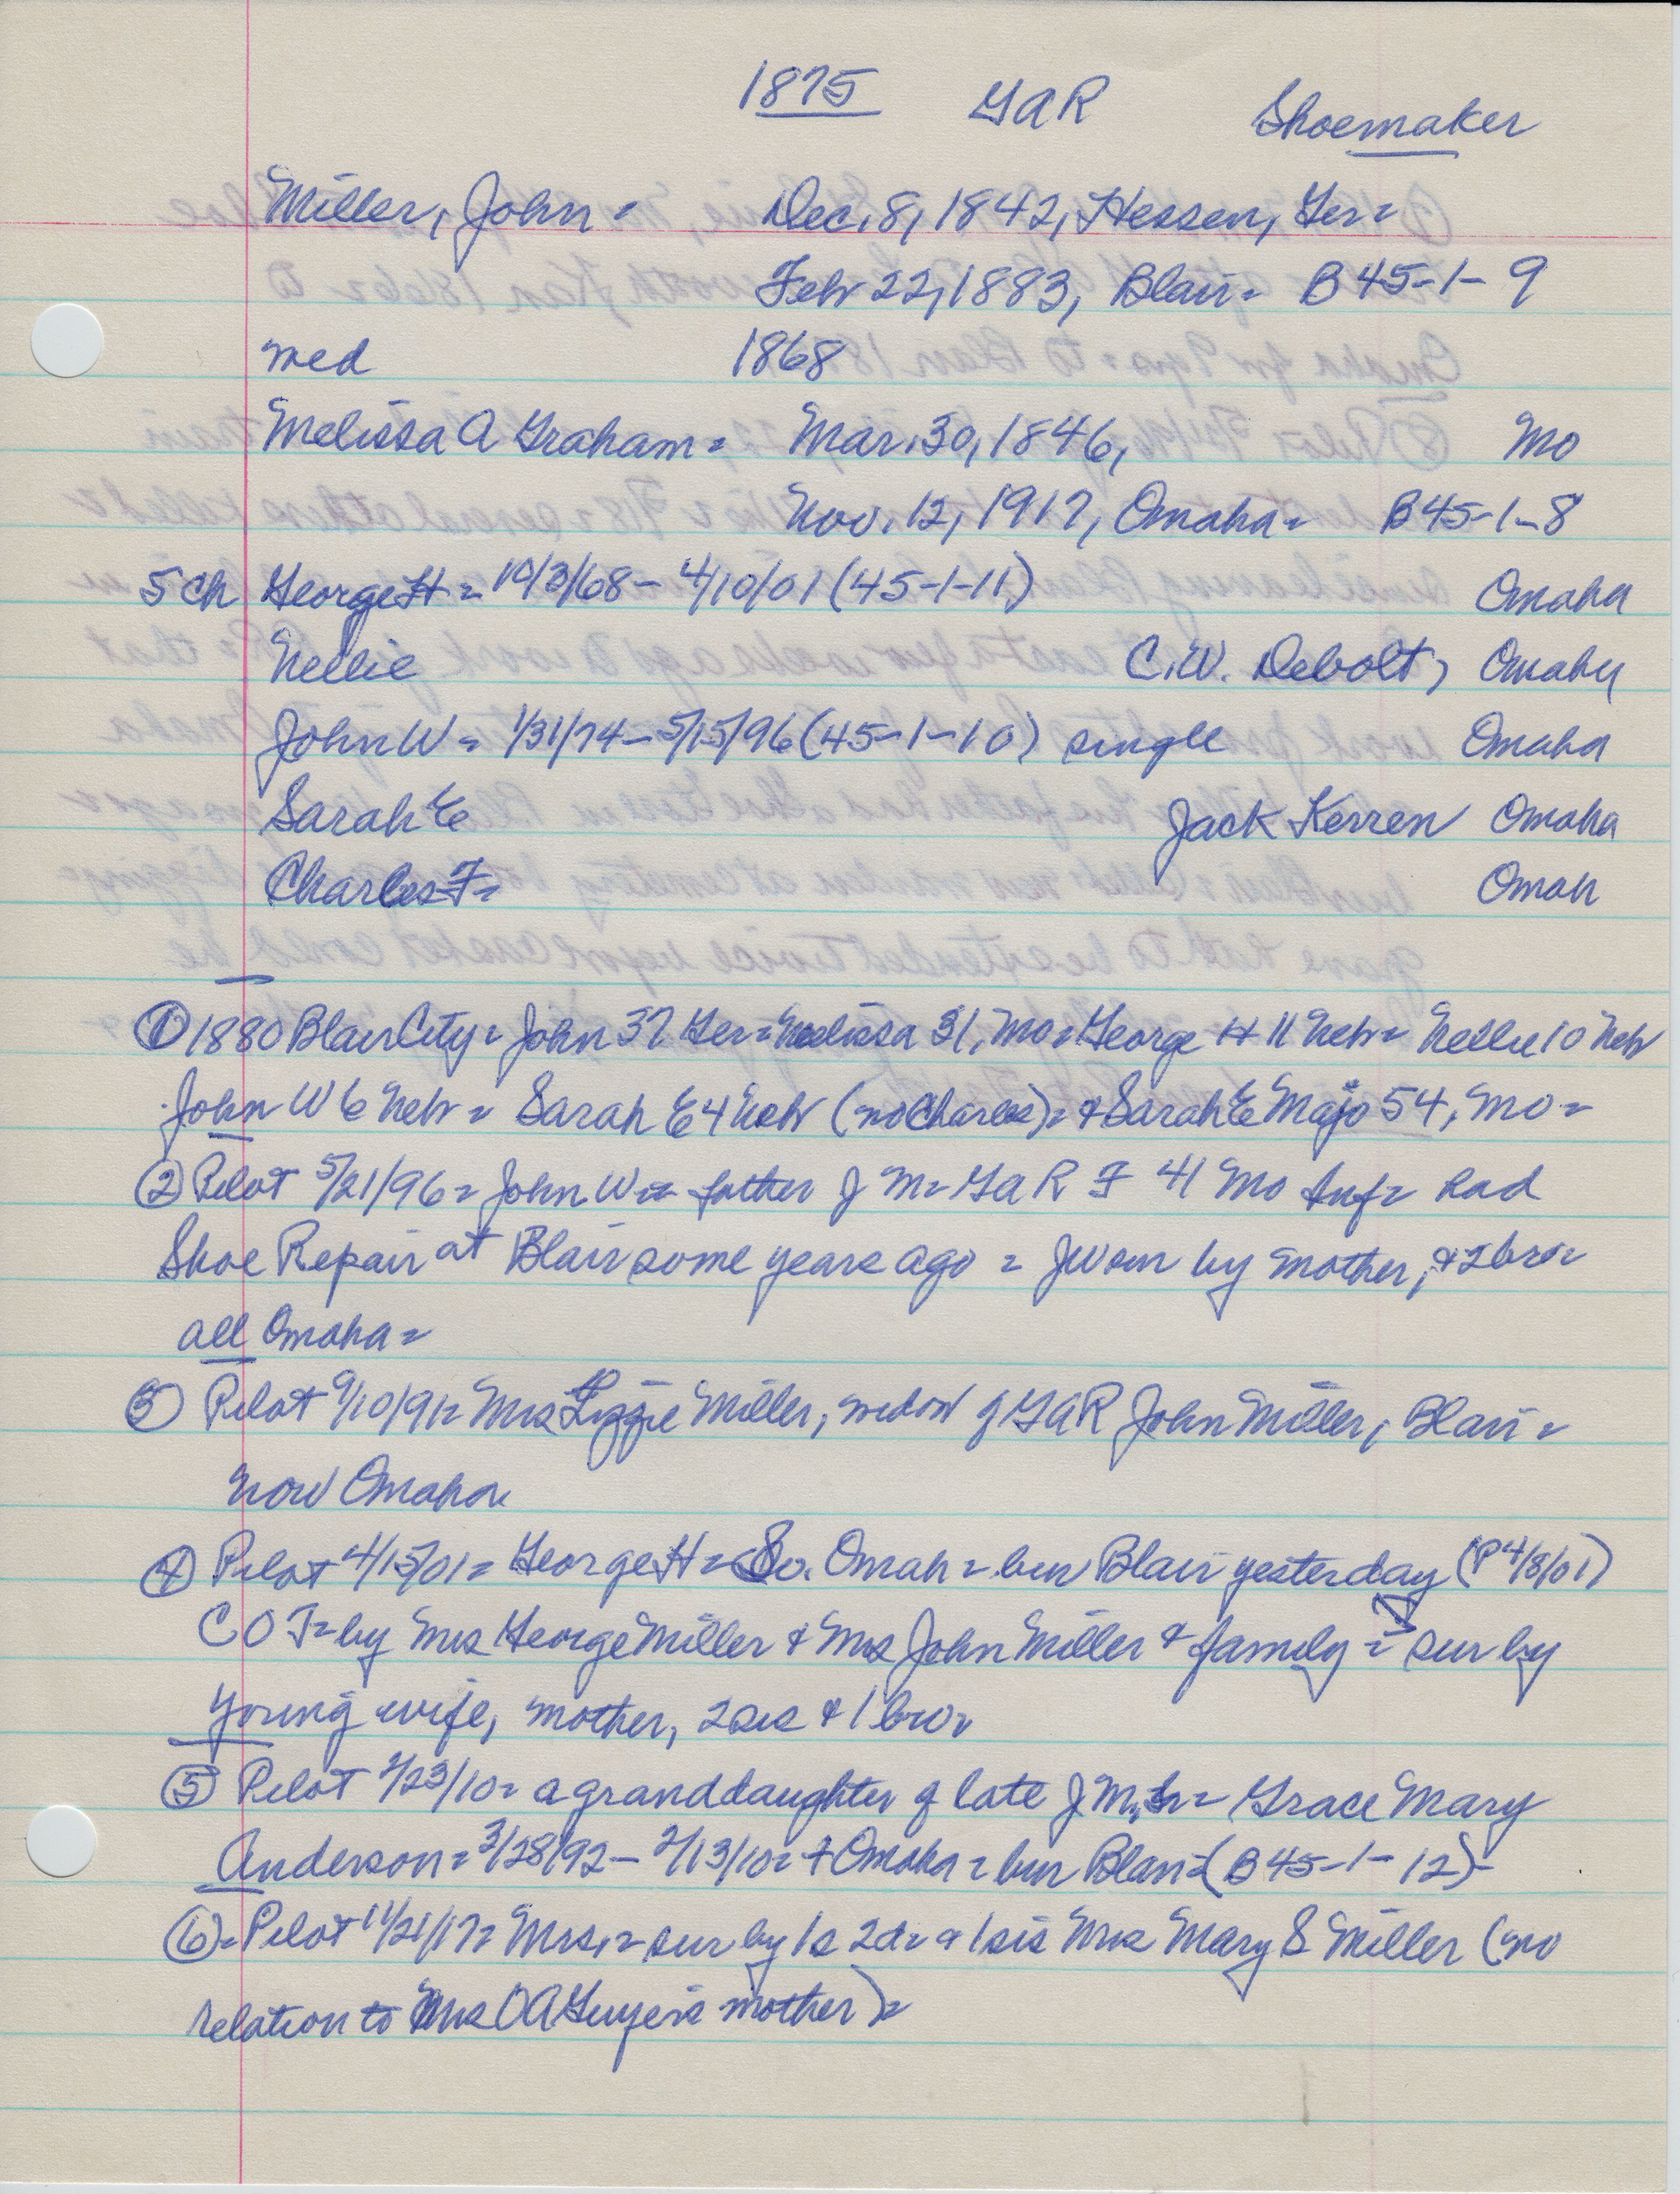 1875 GAR Shoemaker
Miller, John = Dec. 8, 1842, Hessen, Ger =
Feb 22, 1883, Blair = B 45-1-9
med 1868
Melissa A Graham = Mar. 30, 1846, Mo
Nov. 12, 1917, Omaha = B 45-1-8
5 ch George H = 10/3/68 - 4/10/01 (45-1-11) Omaha
Nellie C.W. Debolt, Omaha
John W = 1/31/74 - 5/15/96 (45-1-10) single Omaha
Sarah E Jack Kerren Omaha
Charles F = Omah
① 1880 Blair City = John 37 Ger = Melissa 31, Mo = George H 11 Neb = Nellie 10 Neb
John W 6 Neb = Sarah E 4 Neb (no Charles) = & Sarah E Majo 54, Mo =
② Pilot 5/21/96 = John W = father J M = GAR F 41 Mo Inf = had
Shoe Repair at Blair some years ago = JW sur by mother, & 2 bro =
all Omaha =
③ Pilot 9/10/91 = Mrs Lizzie Miller, widow of GAR John Miller, Blair =
now Omaha
④ Pilot 4/15/01 = George H = So. Omah = bur Blair yesterday (P 4/8/01)
C O T = by Mrs George Miller & Mrs John Miller & family = sur by
young wife, mother, 2 sis & 1 bro =
⑤ Pilot 2/23/10 = a granddaughter of late J M = Grace Mary
Anderson = 3/28/92 - 2/13/10 = + Omaha = bur Blair = (B 45-1-12) -
⑥ = Pilot 11/21/17 = Mrs. = sur by 1s 2d = & 1 sis Mrs Mary S Miller (no
relation to Mrs O A Guyer's mother) =